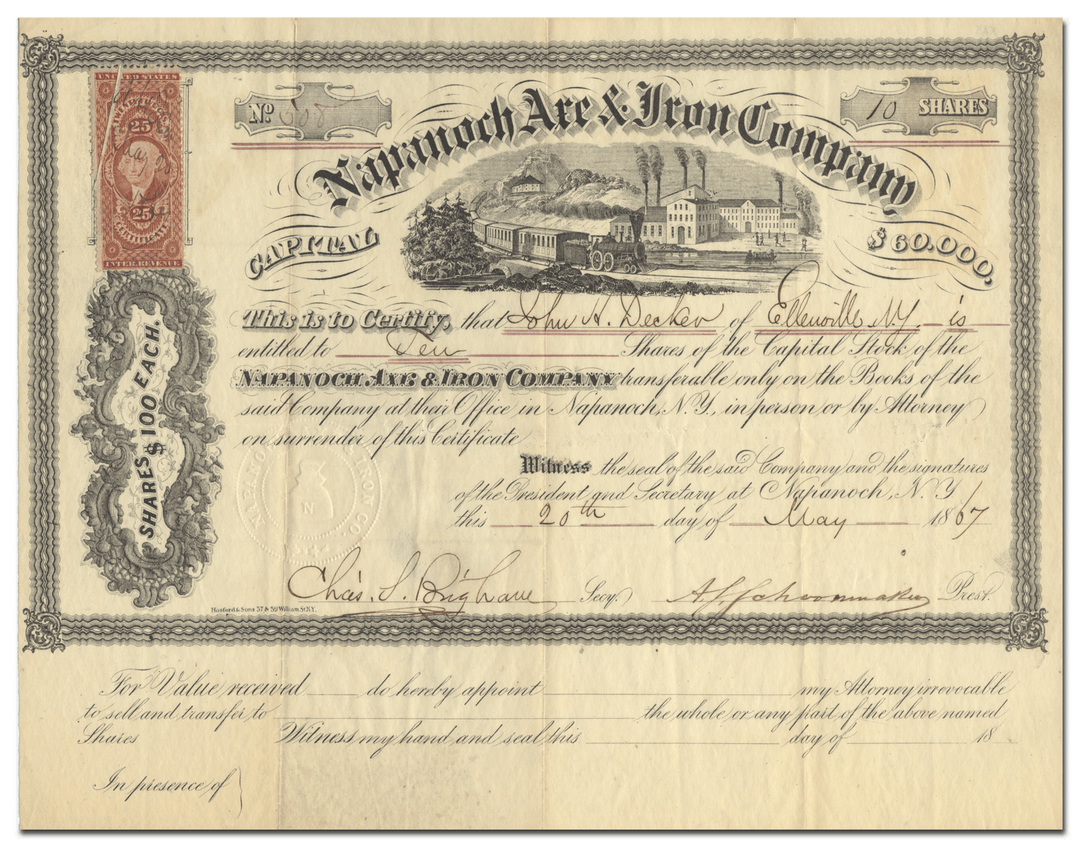 UNITED STATES
25 25
CERTIFICATE
INTER. REVENUE
No
10 SHARES
Napanoch Axe & Iron Company
CAPITAL $60.000,
SHARES $100 EACH.
This is to Certify, that John H. Decker of Ellenville N.Y. is
entitled to Ten Shares of the Capital Stock of the
NAPANOCH AXE & IRON COMPANY transferable only on the Books of the
said Company at their Office in Napanoch, N.Y. in person or by Attorney
on surrender of this Certificate
Witness the seal of the said Company and the signatures
of the President and Secretary at Napanoch, N.Y.
this 20th day of May 1867
Chas. S. Brigham Secy. Schoonmaker Prest.
Hosford & Sons 57 & 59 William St. N.Y.
For Value received do hereby appoint my Attorney irrevocable
to sell and transfer to the whole or any part of the above named
Shares Witness my hand and seal this day of 18
In presence of